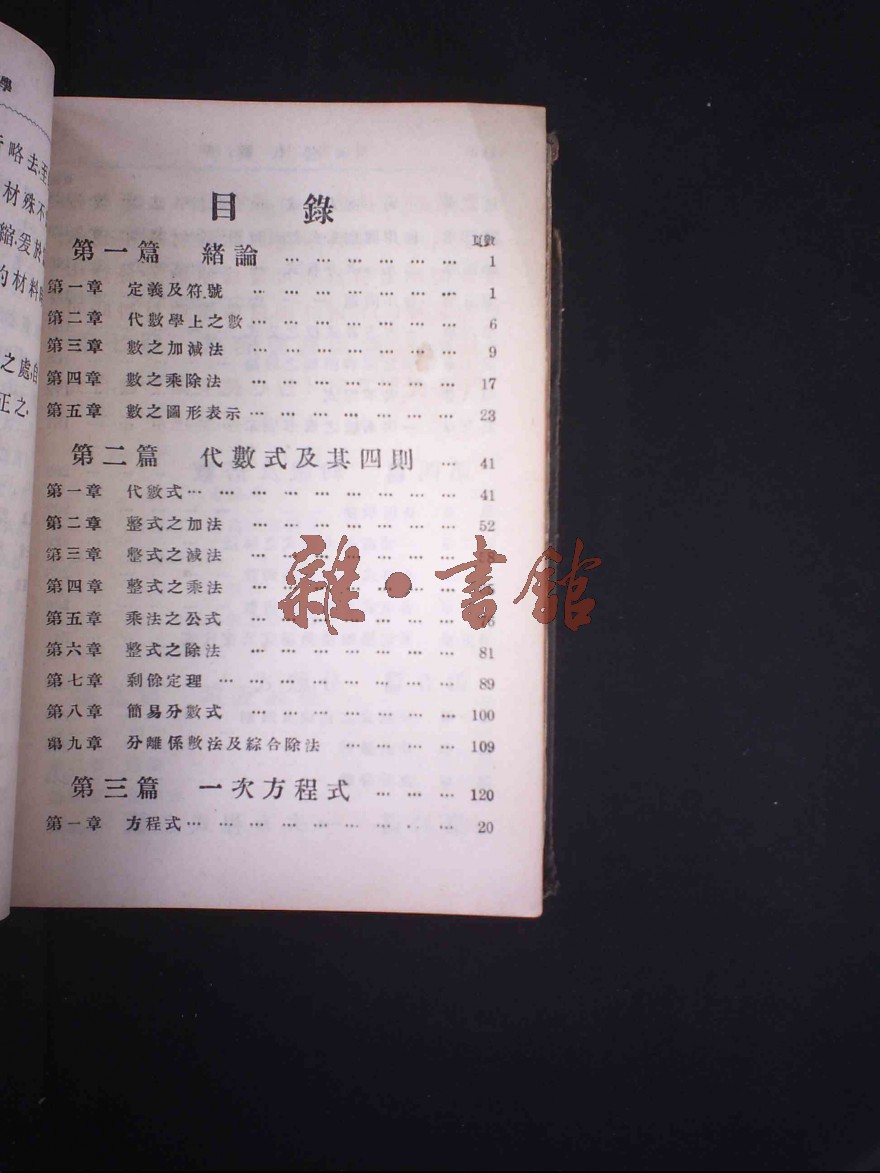 學
略去
材殊不
縮,爰於
的材料
之處,
正之.
目 錄
頁數
第一篇 緒論 … … … … … … 1
第一章 定義及符號 … … … … … … … 1
第二章 代數學上之數 … … … … … … … 6
第三章 數之加減法 … … … … … … … 9
第四章 數之乘除法 … … … … … … … 17
第五章 數之圖形表示 … … … … … … … 23
第二篇 代數式及其四則 … 41
第一章 代數式 … … … … … … … … … 41
第二章 整式之加法 … … … … … … … 52
第三章 整式之減法 … … … … … …
第四章 整式之乘法 … … … … … … …
第五章 乘法之公式 … … … … … … …
第六章 整式之除法 … … … … … … … 81
第七章 剩餘定理 … … … … … … … … 89
第八章 簡易分數式 … … … … … … … 100
第九章 分離係數法及綜合除法 … … … … 109
第三篇 一次方程式 … … … 120
第一章 方程式 … … … … … … … … … 20
雜·書館